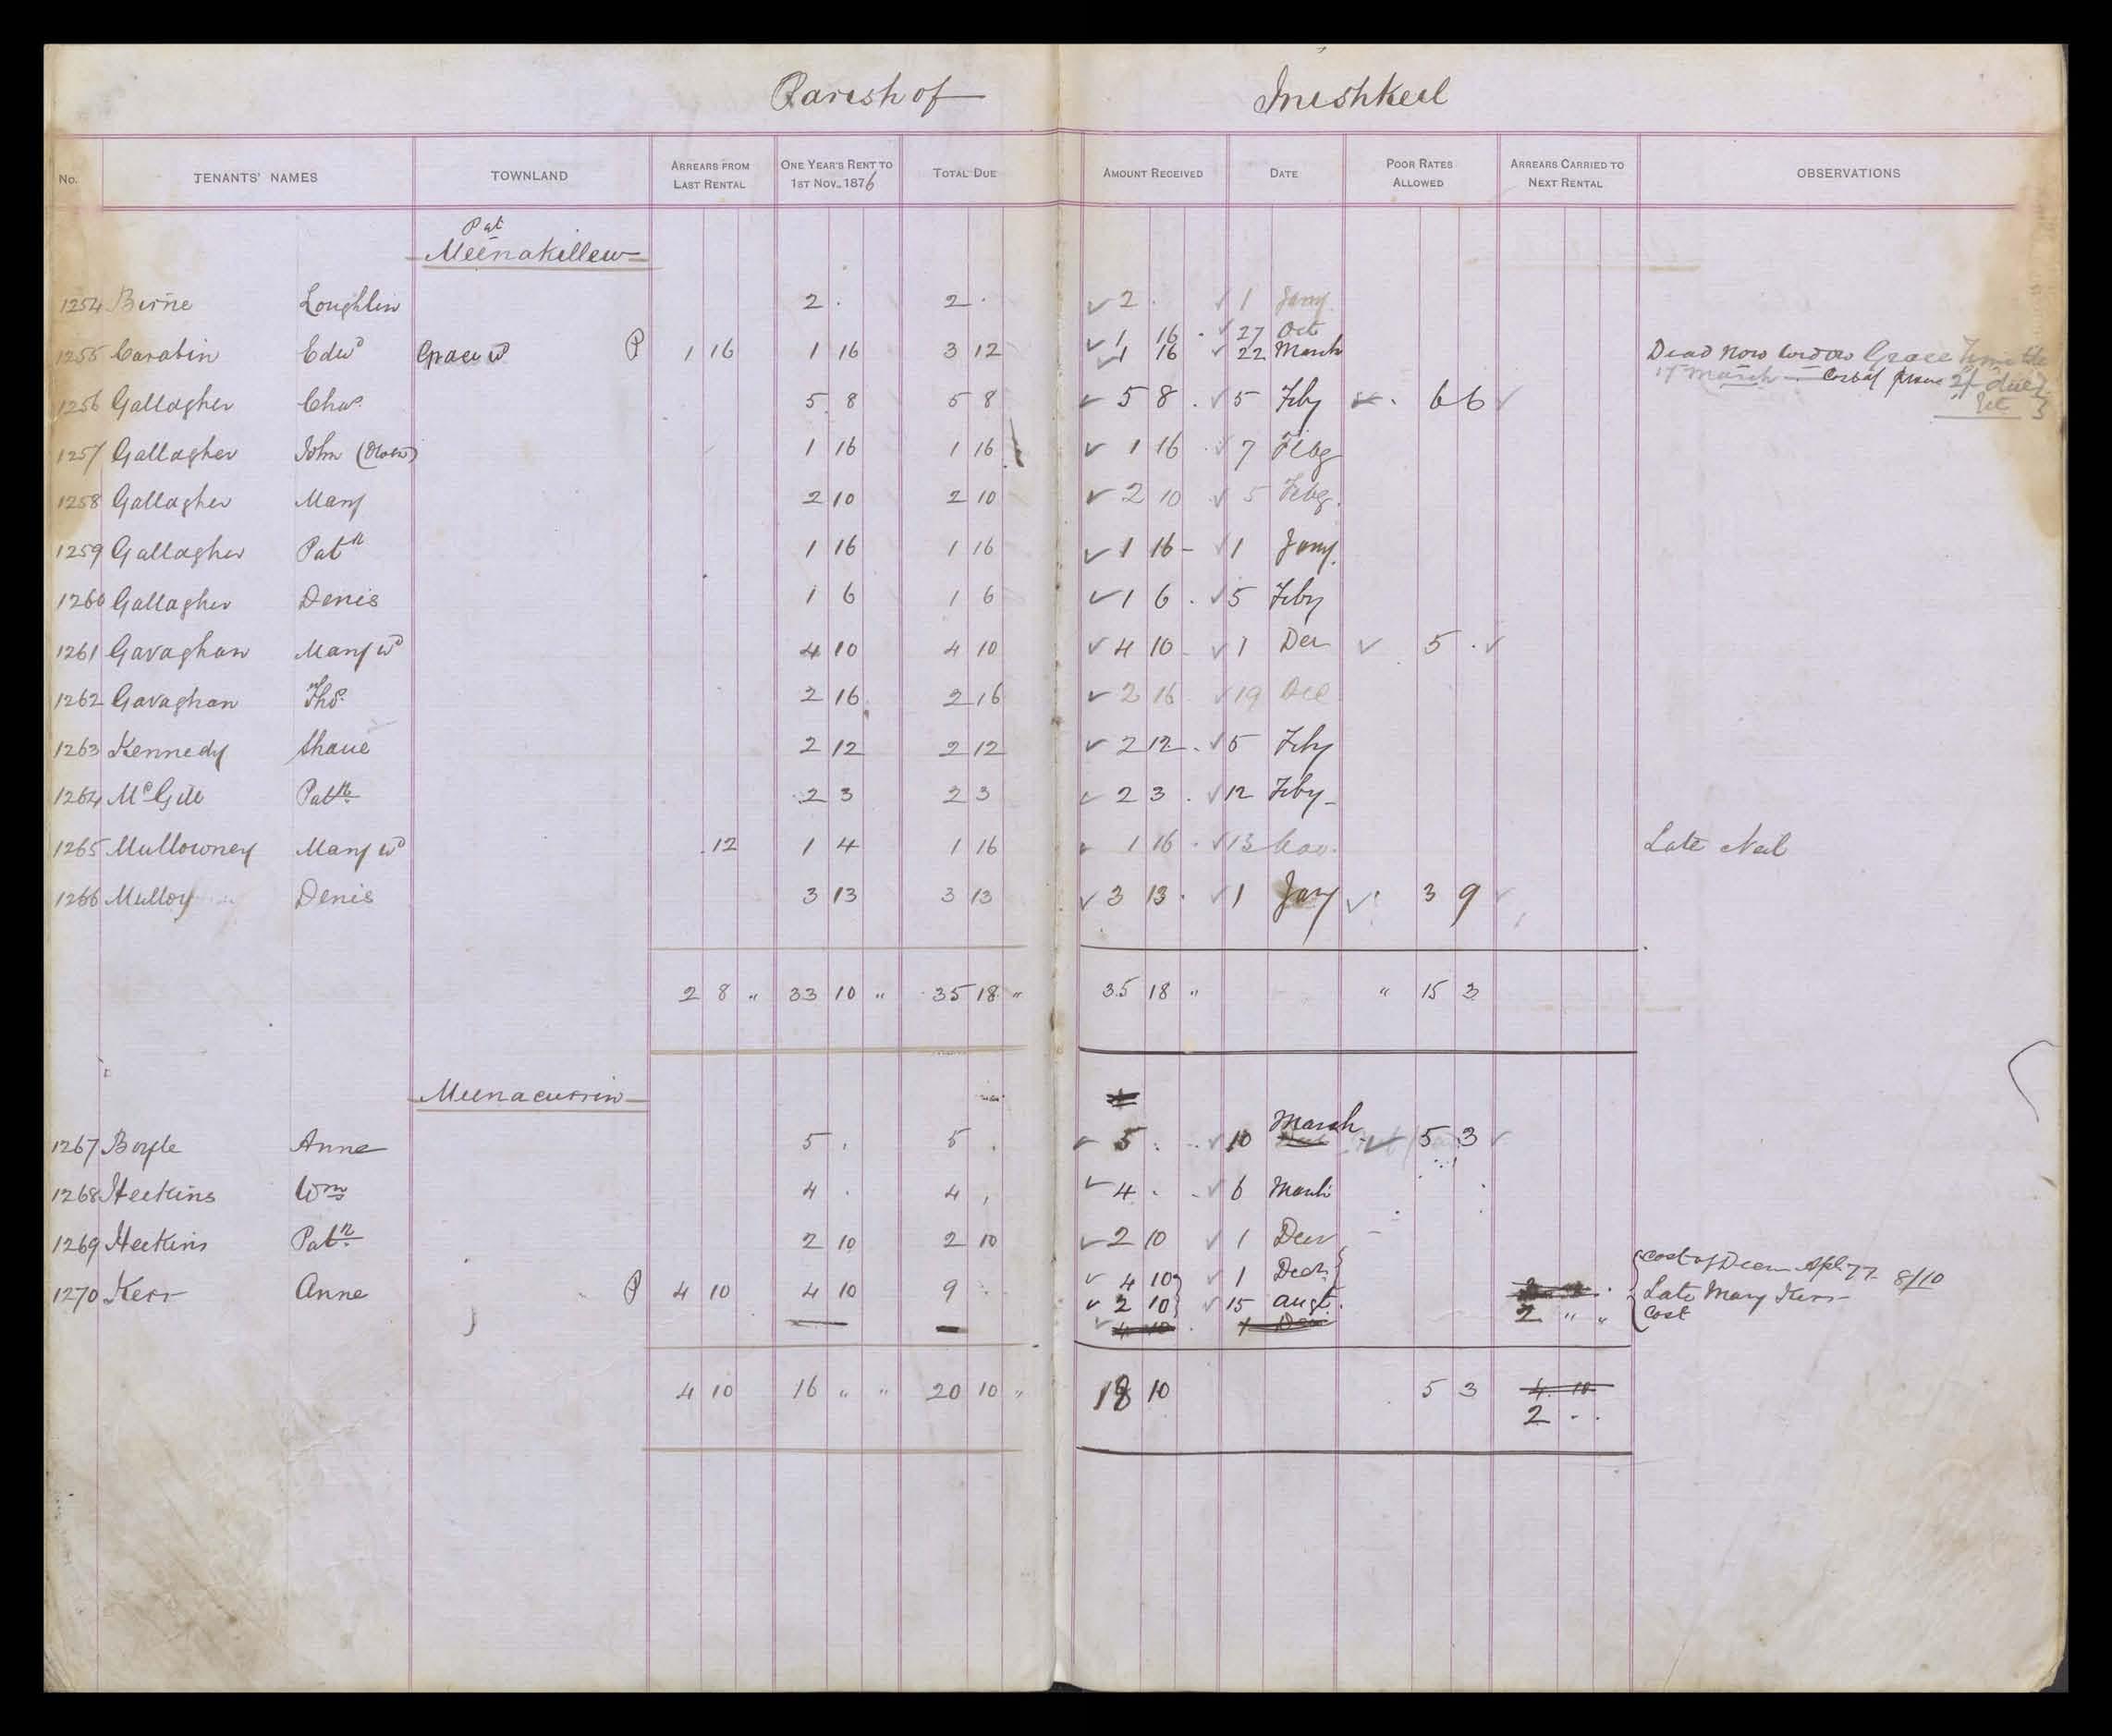 Parish of Inishkeel
No. TENANTS' NAMES TOWNLAND ARREARS FROM LAST RENTAL ONE YEAR'S RENT TO 1ST NOV. 1876 TOTAL DUE AMOUNT RECEIVED DATE POOR RATES ALLOWED ARREARS CARRIED TO NEXT RENTAL OBSERVATIONS
Pat
Meenakillew
1254 Birne Loughlin 2 . 2 . ✓ 2 . ✓ 1 Jany
✓ 1 16 . ✓ 27 Oct
1255 Carabin Edwd Grace wd P 1 16 1 16 3 12 ✓ 1 16 ✓ 22 March Dead now widow Grace
17 March 2/ due
1256 Gallagher Chas. 5 8 5 8 ✓ 5 8 . ✓ 5 Feby ✓ . 6 6 ✓
1257 Gallagher John (Roe) 1 16 1 16 ✓ 1 16 . ✓ 7 Feby
1258 Gallagher Mary 2 10 2 10 ✓ 2 10 . ✓ 5 Feby.
1259 Gallagher Patk 1 16 1 16 ✓ 1 16 - ✓ 1 Jany.
1260 Gallagher Denis 1 6 1 6 ✓ 1 6 . ✓ 5 Feby
1261 Gavaghan Mary wd 4 10 4 10 ✓ 4 10 - ✓ 1 Dec ✓ 5 . ✓
1262 Gavaghan Thos. 2 16 2 16 ✓ 2 16 . ✓ 19 Dec
1263 Kennedy Shane 2 12 2 12 ✓ 2 12 . ✓ 5 Feby
1264 McGill Patk. 2 3 2 3 ✓ 2 3 . ✓ 12 Feby
1265 Mullowney Mary wd . 12 1 4 1 16 ✓ 1 16 . ✓ 13 Nov. Late Neil
1266 Mulloy Denis 3 13 3 13 ✓ 3 13 . ✓ 1 Jany ✓ . 3 9 ✓
2 8 " 33 10 " 35 18 " 35 18 " " 15 3
Meenacurrin
March
1267 Boyle Anne 5 . 5 . ✓ 5 . . ✓ 10 ✓ 5 3 ✓
1268 Heekins Wm 4 . 4 . ✓ 4 . . ✓ 6 March
1269 Heekins Patk. 2 10 2 10 ✓ 2 10 ✓ 1 Decr
✓ 4 10 ✓ 1 Decr. Cost of Decree Apl. 77 8/10
1270 Kerr Anne P 4 10 4 10 9 . ✓ 2 10 ✓ 15 Augt. Late Mary Kerr
2 " " Cost
4 10 1 Decr
4 10 16 " " 20 10 " 18 10 5 3 4 10
2 . .